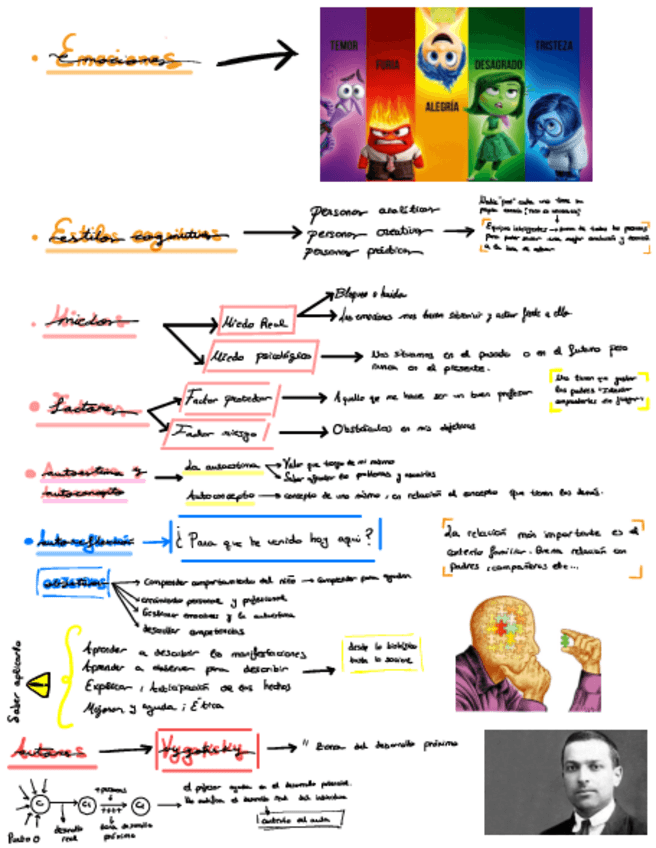 Emociones
TEMOR
FURIA
ALEGRÍA
DESAGRADO
TRISTEZA
Estilos cognitivos
personas analíticas
personas creativas
personas prácticas
Equipos inteligentes → suma de todas las personas
para poder sacar una mejor evolución y
a la hora de
miedos
Miedo Real
Bloqueo o huida
Las emociones nos hacen sobrevivir y actuar frente a ello
Miedo psicológico
Nos situamos en el pasado o en el futuro pero
nunca en el presente.
factores
Factor protector
Aquello que me hace ser un buen profesor
Factor riesgo
Obstáculos en mis objetivos
Nos tienen que gustar
los padres "
autoestima y
autoconcepto
La autoestima
Valor que tengo de mi mismo
Saber afrontar los problemas y
Autoconcepto → concepto de uno mismo, en relación al concepto que tienen los demás.
Auto reflexión
¿Para que he venido hoy aquí?
La relación más importante es el
contexto familiar. Buena relación con
padres, compañeros etc...
objetivos
Comprender comportamientos del niño → comprender para ayudar
crecimiento personal y profesional
Gestionar emociones y la autoestima
desarrollar competencias
Saber aplicarlo
Aprender a describir las manifestaciones
Aprender a observar para describir
Explicar, Anticipación de los hechos
Mejorar y ayuda; Ética
desde lo biológico
hasta lo social
Autores
Vygotsky
" Zona del desarrollo próximo
Punto 0
desarrollo
real
+personas
zona desarrollo
próximo
el profesor ayuda en el desarrollo potencial.
contexto del aula